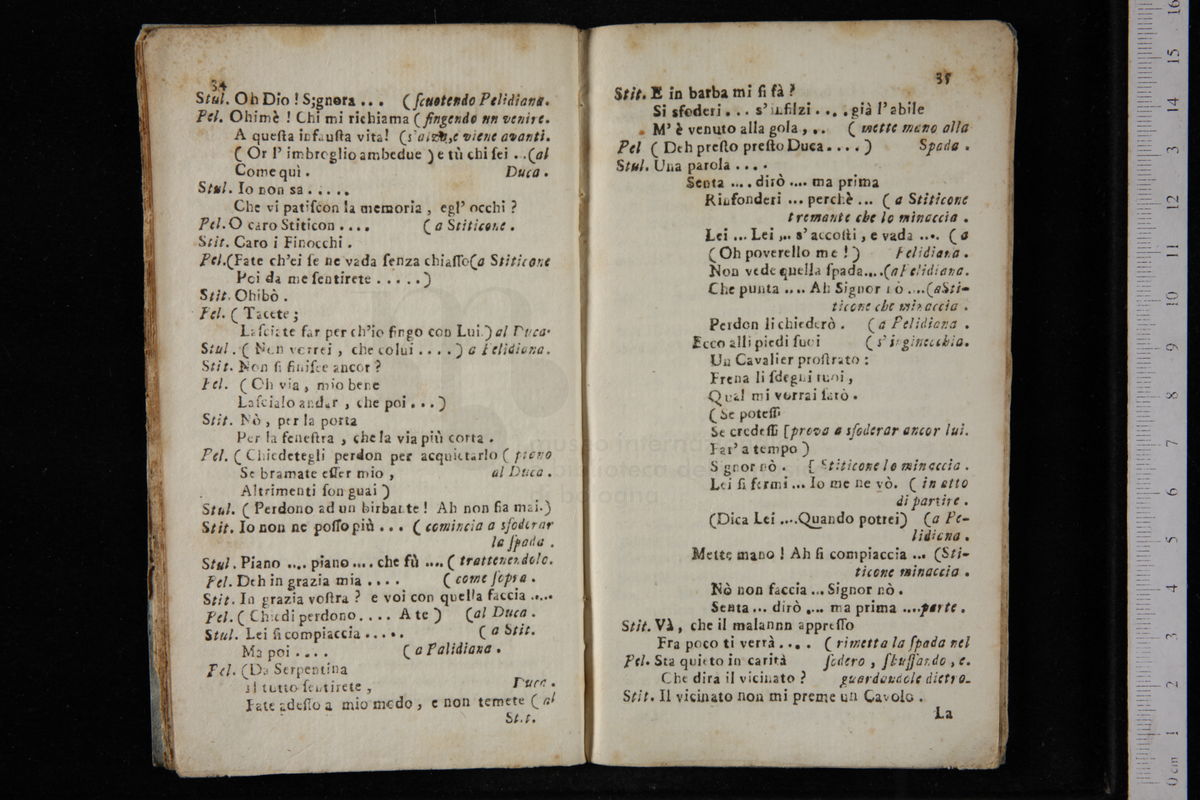 34
Stul. Oh Dio ! Signora ... (ſcuotendo Pelidiana.
Pel. Ohimè ! Chi mi richiama (fingendo nn venire.
A queſta infauſta vita! (s'alza,e viene avanti.
( Or l' imbroglio ambedue ) e tù chi ſei ..(al
Come quì . Duca .
Stul. Io non sa .....
Che vi patiſcon la memoria , egl' occhi ?
Pel. O caro Stiticon .... ( a Stiticone .
Stit. Caro i Finocchi .
Pel.(Fate ch'ei ſe ne vada ſenza chiaſſo(a Stiticone
Poi da me ſentirete .....)
Stit. Ohibò .
Pel. ( Tacete ;
Laſciate far per ch'io fingo con Lui.) al Duca.
Stul. ( Non verrei , che colui ....) a Pelidiana.
Stit. Non ſi finiſce ancor ?
Pel. (Oh via , mio bene
Laſcialo andar , che poi ...)
Stit. Nò , per la porta
Per la feneſtra , che la via più corta .
Pel. ( Chiedetegli perdon per acquietarlo ( piano
Se bramate eſſer mio , al Duca .
Altrimenti ſon guai )
Stul. ( Perdono ad un birbante ! Ah non ſia mai.)
Stit. Io non ne poſſo più ... ( comincia a sfoderar
la ſpada .
Stul. Piano .... piano .... che fù .... ( trattenendolo.
Pel. Deh in grazia mia .... ( come ſopra .
Stit. In grazia voſtra ? e voi con quella faccia .....
Pel. ( Chiedi perdono .... A te ) (al Duca .
Stul. Lei ſi compiaccia ..... ( a Stit.
Ma poi .... ( a Palidiana .
Pel. (Da Serpentina
il tutto ſentirete , Duca .
Fate adeſſo a mio modo , e non temete ( al
Stit.
35
Stit. E in barba mi ſi fà ?
Si sfoderi ... s'infilzi .... già l' abile
M' è venuto alla gola , .. ( mette mano alla
Pel ( Deh preſto preſto Duca .... ) Spada .
Stul. Una parola ....
Senta .... dirò .... ma prima
Rinfonderi ... perchè ... ( a Stiticone
tremante che lo minaccia .
Lei ... Lei ,.. s' accoſti , e vada .... ( a
( Oh poverello me ! ) Pelidiana .
Non vede quella ſpada....(a Pelidiana.
Che punta .... Ah Signor nò ....(a Sti-
ticone che minaccia .
Perdon li chiederò . ( a Pelidiana .
Ecco alli piedi ſuoi ( s'inginocchia.
Un Cavalier proſtrato :
Frena li ſdegni tuoi ,
Qual mi vorrai ſarò .
( Se poteſſi
Se credeſſi [prova a sfoderar ancor lui.
Far' a tempo )
Signor nò . [ Stiticone lo minaccia .
Lei ſi fermi ... Io me ne vò. ( in atto
di partire .
(Dica Lei ....Quando potrei) (a Pe-
lidiana .
Mette mano ! Ah ſi compiaccia ... (Sti-
ticone minaccia .
Nò non faccia ... Signor nò .
Senta ... dirò .... ma prima ....parte .
Stit. Và , che il malannn appreſſo
Fra poco ti verrà .... ( rimetta la ſpada nel
Pel. Sta quieto in carità fodero , ſbuffando , e.
Che dira il vicinato ? guardandole dietro.
Stit. Il vicinato non mi preme un Cavolo .
La